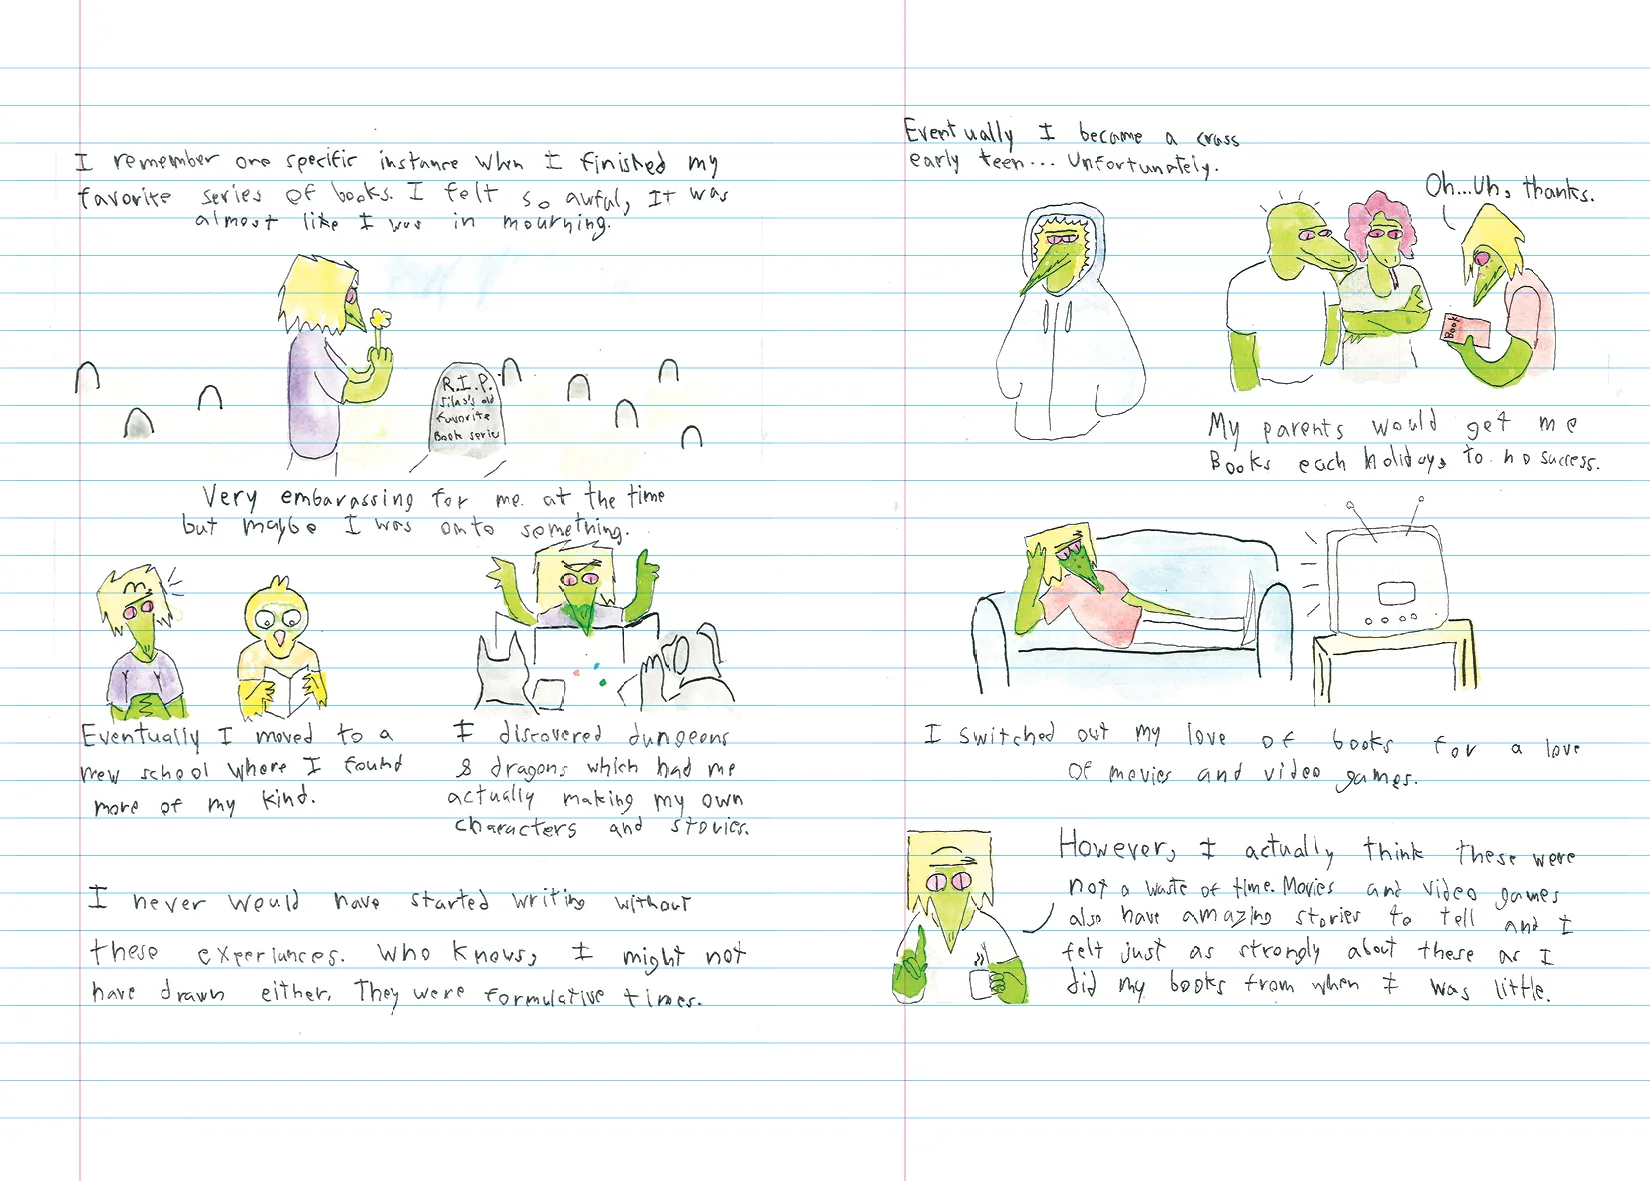 I remember one specific instance when I finished my
favorite series of books. I felt so awful, It was
almost like I was in mourning.
R.I.P.
Silas's old
favorite
Book series
Very embarassing for me at the time
but maybe I was onto something.
Eventually I moved to a
new school where I found
more of my kind.
I discovered dungeons
& dragons which had me
actually making my own
characters and stories.
I never would have started writing without
these experiances. Who knows, I might not
have drawn either. They were formulative times.
Eventually I became a crass
early teen... Unfortunately.
Oh...Uh, thanks.
Book
My parents would get me
Books each holiday, to no success.
I switched out my love of books for a love
of movies and video games.
However, I actually think these were
not a waste of time. Movies and video games
also have amazing stories to tell and I
felt just as strongly about these as I
did my books from when I was little.